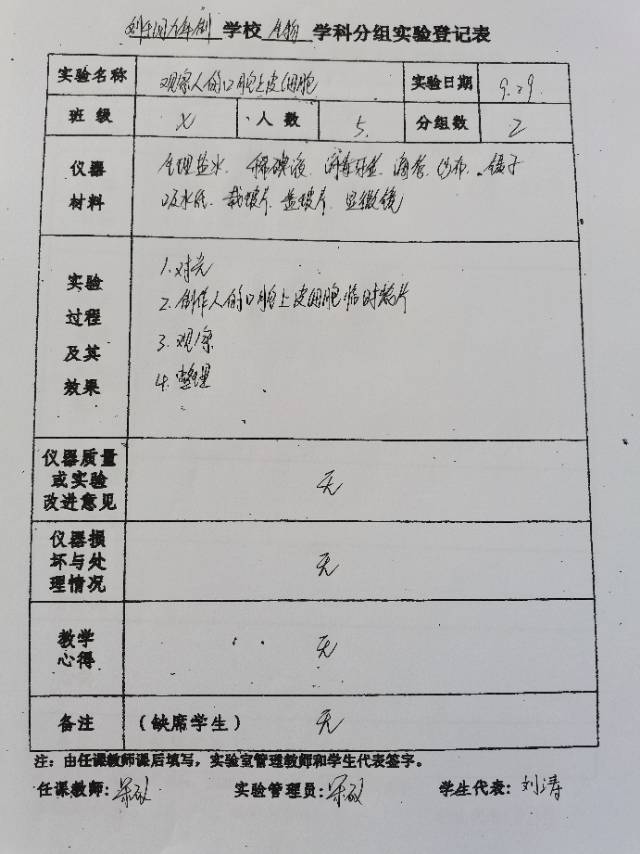 学校 生物 学科分组实验登记表
实验名称 观察人的口腔上皮细胞 实验日期 9.29.
班级 人数 5. 分组数 2
仪器材料 生理盐水、稀碘液、消毒牙签、滴管、纱布、镊子
吸水纸、载玻片、盖玻片、显微镜
实验过程及其效果 1.对光
2.制作人的口腔上皮细胞临时装片
3.观察
4.整理
仪器质量或实验改进意见 无
仪器损坏与处理情况 无
教学心得 无
备注 (缺席学生) 无
注：由任课教师课后填写，实验室管理教师和学生代表签字。
任课教师: 实验管理员: 学生代表: 刘涛